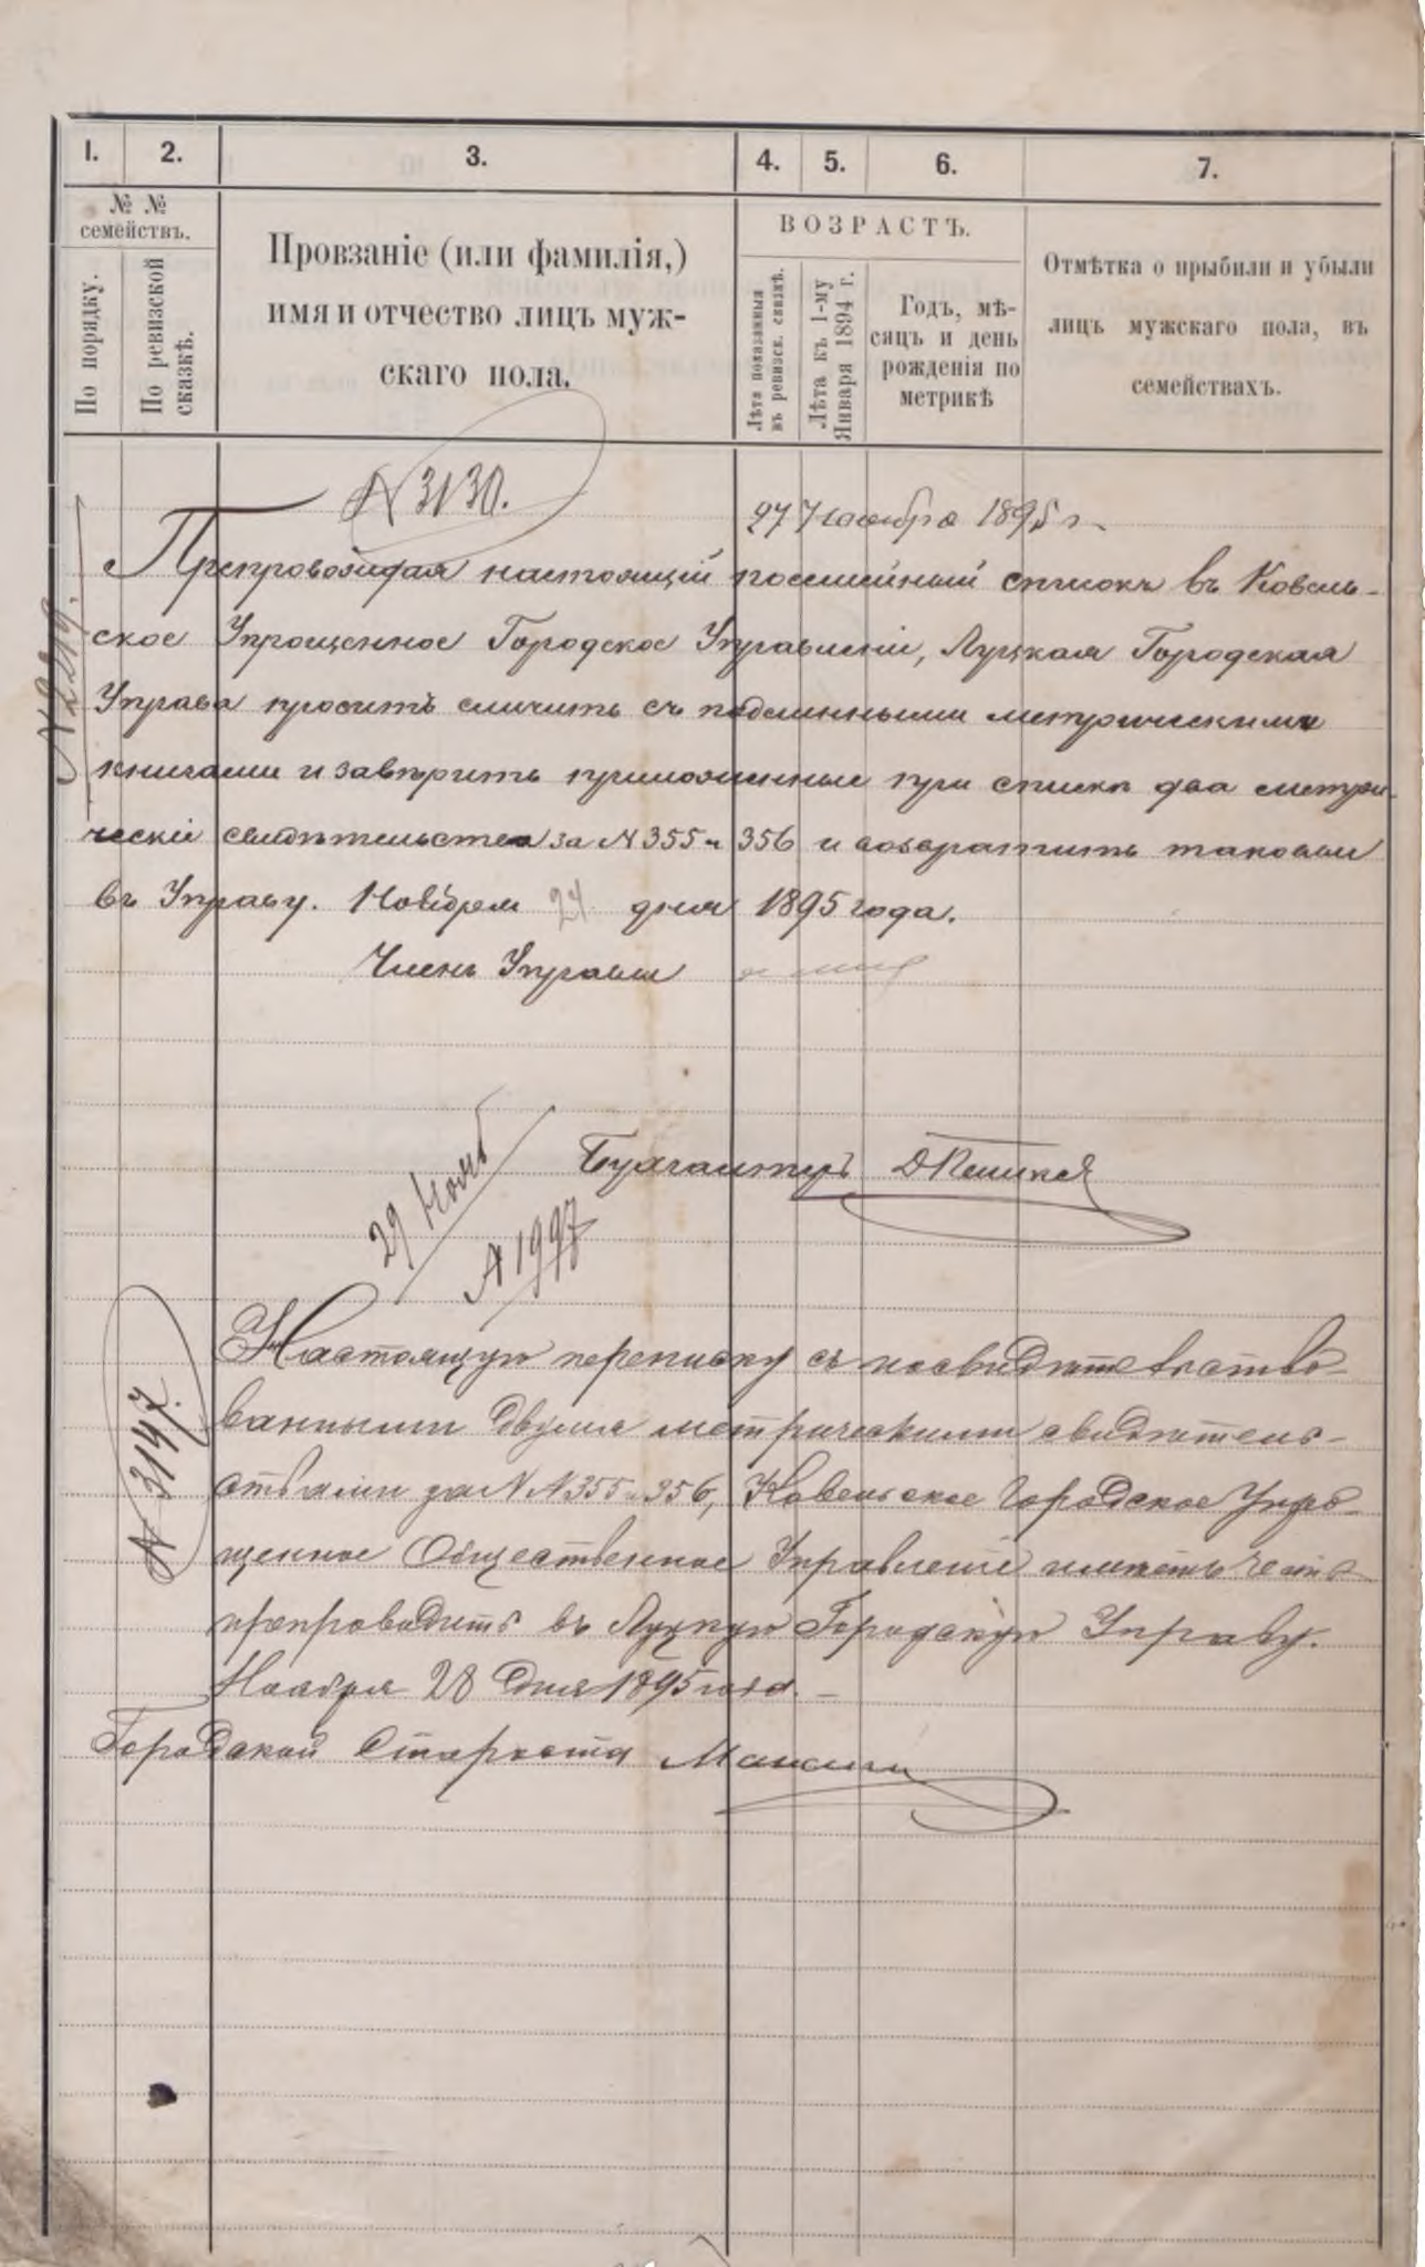 1. 2. 3. 4. 5. 6. 7.
№ №
семействъ.
По порядку.
По ревизской
сказкѣ.
Провзаніе (или фамилія,)
имя и отчество лицъ муж-
скаго пола.
ВОЗРАСТЪ.
Лѣта показанныя
въ ревизск. сказкѣ.
Лѣта къ 1-му
Января 1894 г.
Годъ, мѣ-
сяцъ и день
рожденія по
метрикѣ
Отмѣтка о прыбыли и убыли
лицъ мужскаго пола, въ
семействахъ.
N 3130.
27 Ноября 1895 г.
Препровождая настоящій посемейный списокъ въ Ковель-
ское Упрощенное Городское Управленіе, Луцкая Городская
Управа проситъ сличить съ подлинными метрическими
книгами и завѣрить приложенные при списке два метри-
ческіе свидѣтельства за N 355 и 356 и возвратить таковыи
въ Управу. Ноября 24 дня 1895 года.
Членъ Управы
Бухгалтеръ
29 Нояб
N 1997
N 3147.
Настоящую переписку съ посвидѣтельство-
ванными двумя метрическими свидѣтель-
ствами за N N 355 и 356, Ковельское Городское Упро-
щенное Общественное Управленіе имѣетъ честь
препроводить въ Луцкую Городскую Управу.
Ноября 28 дня 1895 года.
Городской Староста